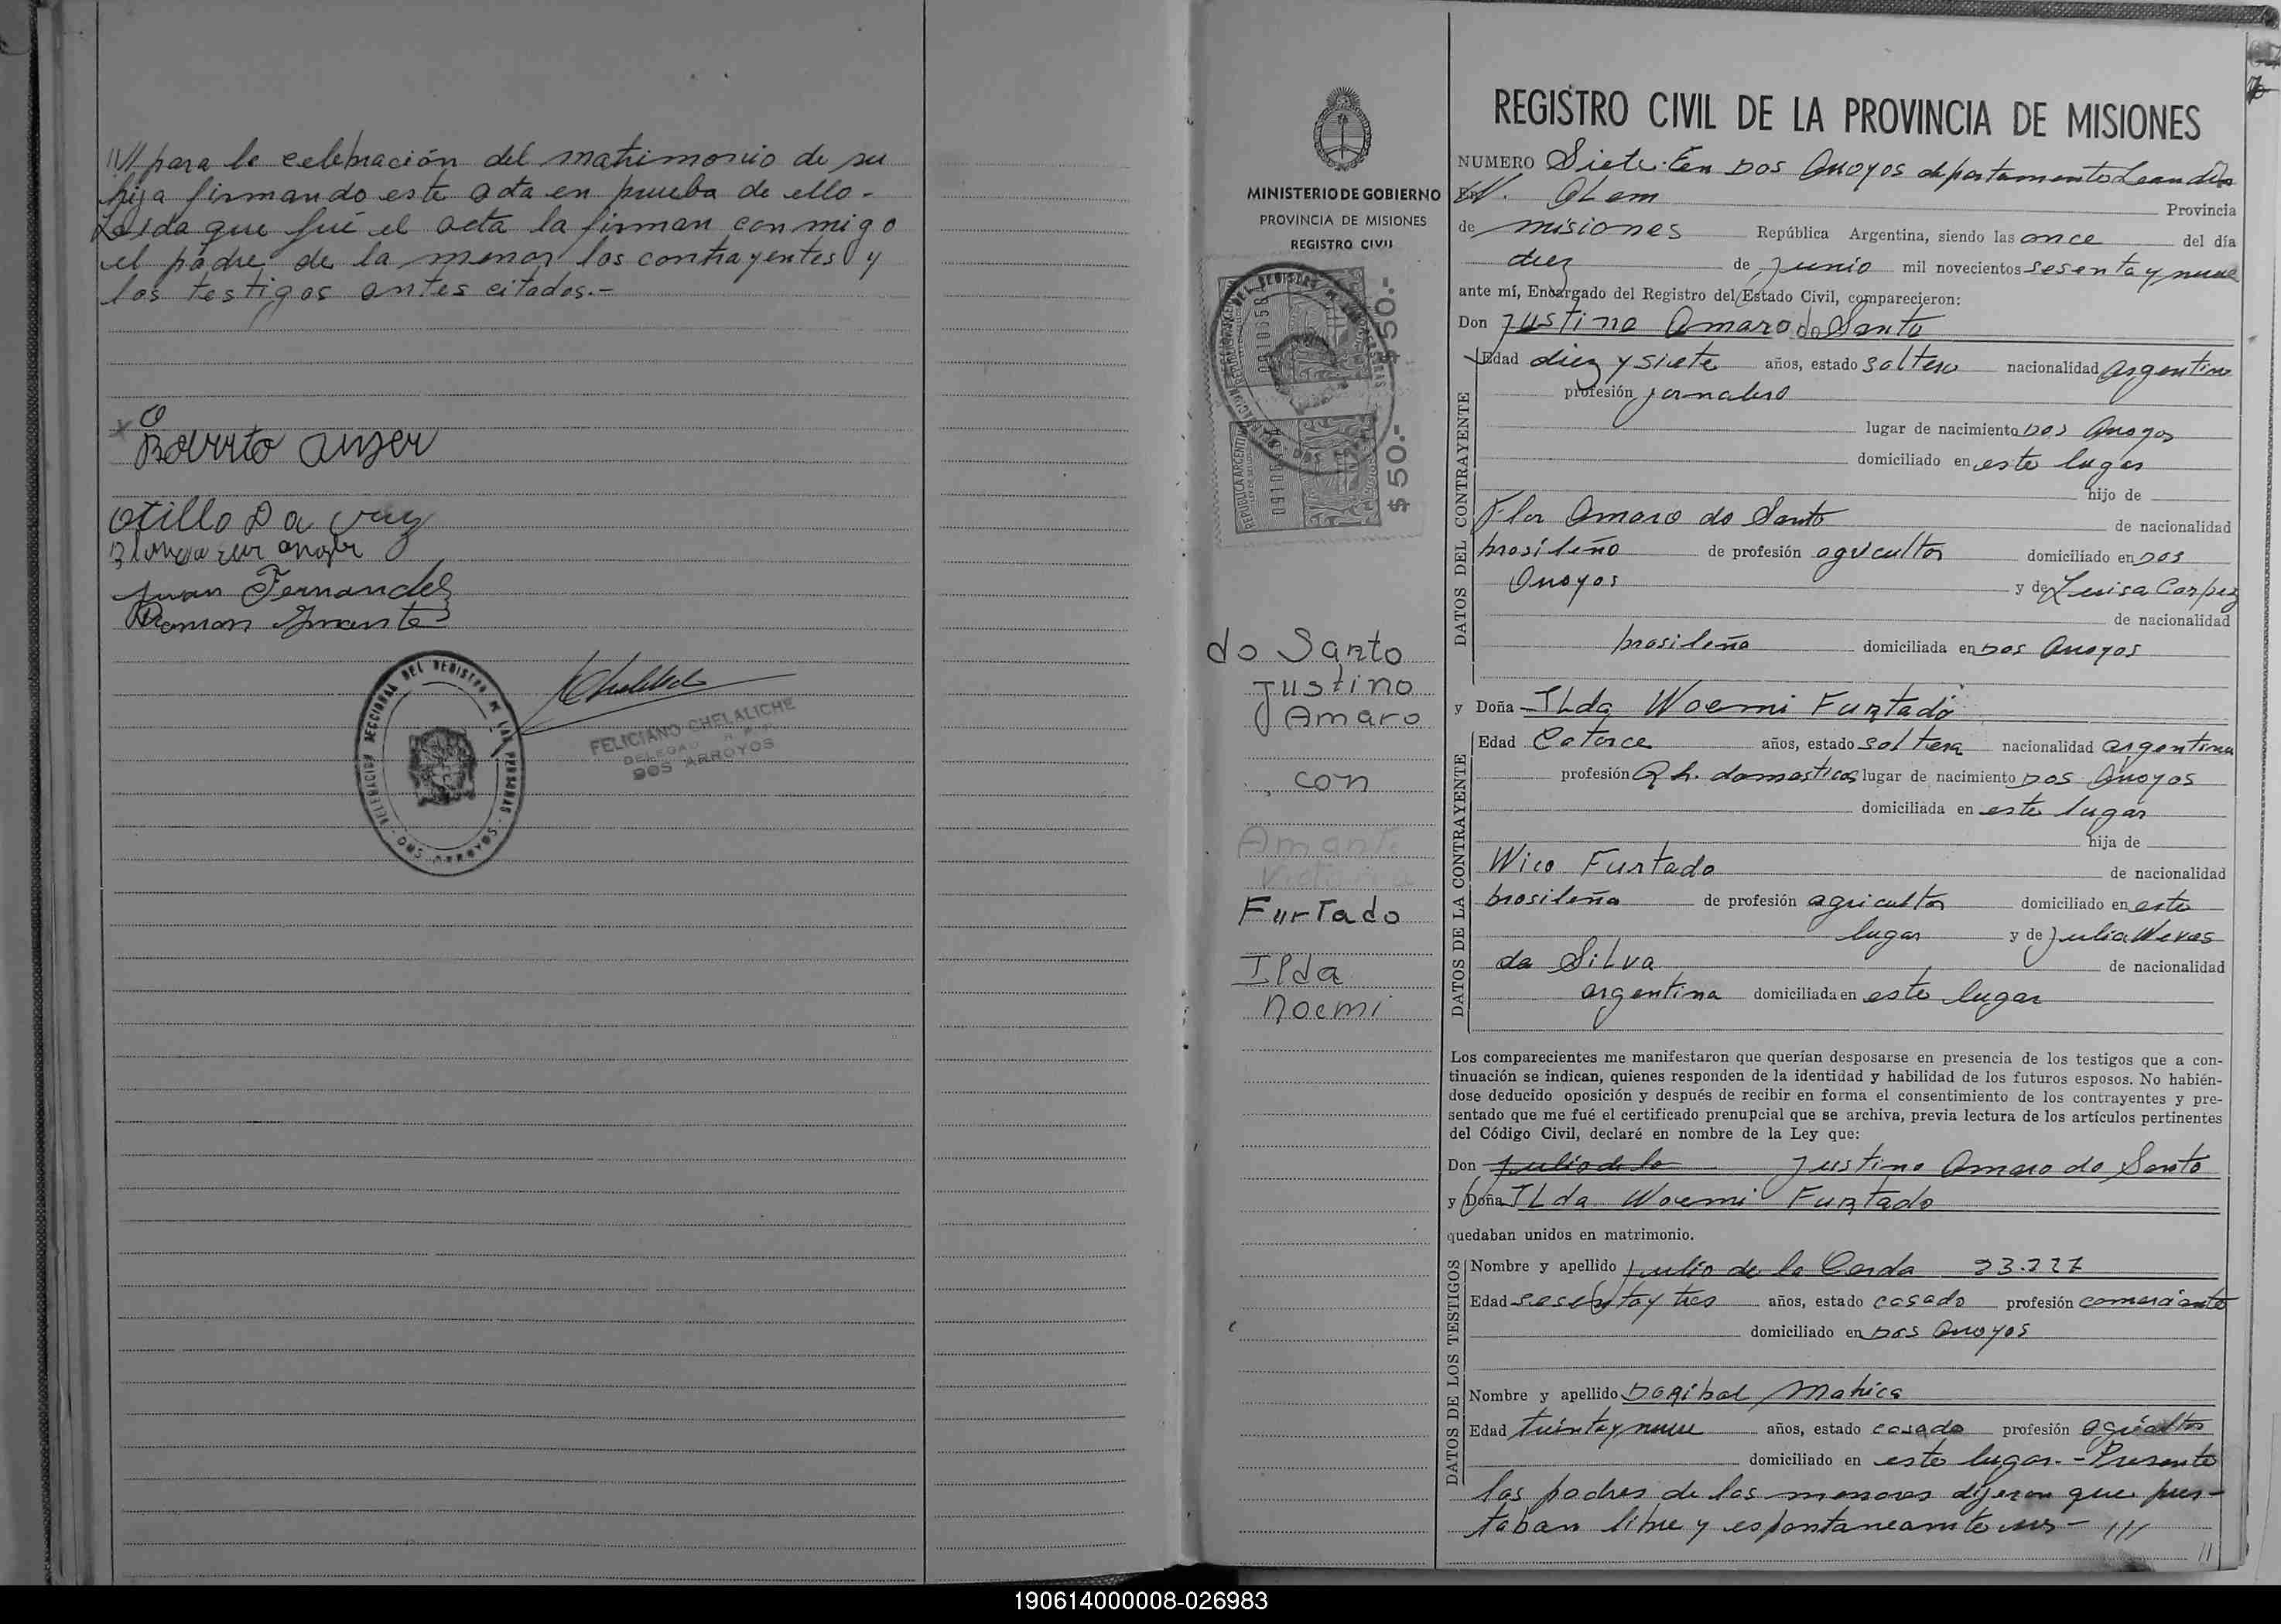 //// para la celebración del matrimonio de su
hija firmando este acta en prueba de ello.-
Leida que fué el acta la firman conmigo
el padre de la menor los contrayentes y
los testigos antes citados.-
Juan Fernandez
Ramon
DELEGACION SECCIONAL DEL REGISTRO DE LAS PERSONAS - DOS ARROYOS -
FELICIANO CHELALICHE
DOS ARROYOS
MINISTERIO DE GOBIERNO
PROVINCIA DE MISIONES
REGISTRO CIVIL
$ 50.-
$ 50.-
do Santo
Justino
Amaro
con
Amante
Victoria
Furtado
Ilda
Noemi
7
REGISTRO CIVIL DE LA PROVINCIA DE MISIONES
NUMERO Siete. En Dos Arroyos departamento Leandro
En N. Alem Provincia
de misiones República Argentina, siendo las once del día
diez de Junio mil novecientos sesenta y nueve
ante mí, Encargado del Registro del Estado Civil, comparecieron:
Don Justino Amaro do Santo
DATOS DEL CONTRAYENTE
Edad diez y siete años, estado soltero nacionalidad argentino
profesión jornalero
lugar de nacimiento Dos Arroyos
domiciliado en este lugar
hijo de
Flor Amaro do Santo
de nacionalidad
brasileño de profesión agricultor domiciliado en Dos
Arroyos y de Luisa
de nacionalidad
brasileña domiciliada en Dos Arroyos
y Doña ILda Noemi Furtado
DATOS DE LA CONTRAYENTE
Edad Catorce años, estado soltera nacionalidad argentina
profesión Q.h. domesticos lugar de nacimiento Dos Arroyos
domiciliada en este lugar
hija de
Nico Furtado
de nacionalidad
brasileña de profesión agricultor domiciliado en este
lugar y de Julia Neves
da Silva
de nacionalidad
argentina domiciliada en este lugar
Los comparecientes me manifestaron que querían desposarse en presencia de los testigos que a con-
tinuación se indican, quienes responden de la identidad y habilidad de los futuros esposos. No habién-
dose deducido oposición y después de recibir en forma el consentimiento de los contrayentes y pre-
sentado que me fué el certificado prenupcial que se archiva, previa lectura de los artículos pertinentes
del Código Civil, declaré en nombre de la Ley que:
Don Julio de la Justino Amaro do Santo
y Doña ILda Noemi Furtado
quedaban unidos en matrimonio.
DATOS DE LOS TESTIGOS
Nombre y apellido Julio de la Cerda
Edad sesenta y tres años, estado casado profesión comerciante
domiciliado en Dos Arroyos
Nombre y apellido
Edad treinta y nueve años, estado casado profesión agricultor
domiciliado en este lugar.- Presente
los padres de los menores dijeron que pres-
taban libre y espontaneamente sus- ///
190614000008-026983